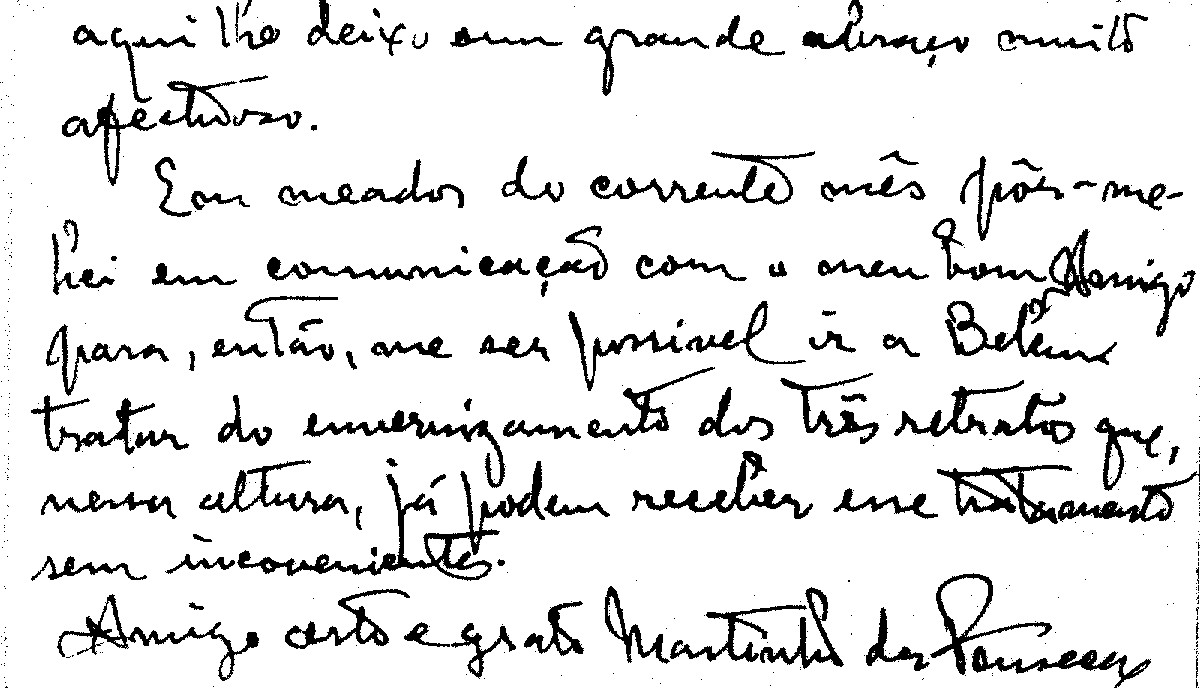 aqui lhe deixo um grande abraço muito
afectuoso.
Em meados do corrente mês pôr-me-
hei em comunicação com o meu bom Amigo
para, então, me ser possivel ir a Belem
tratar do envernizamento dos três retratos que,
nessa altura, já podem receber esse tratamento
sem inconvenientes.
Amigo certo e grato Martinho da Fonseca